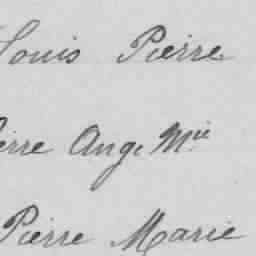 Louis Pierre
Pierre Ange Mie
Pierre Marie